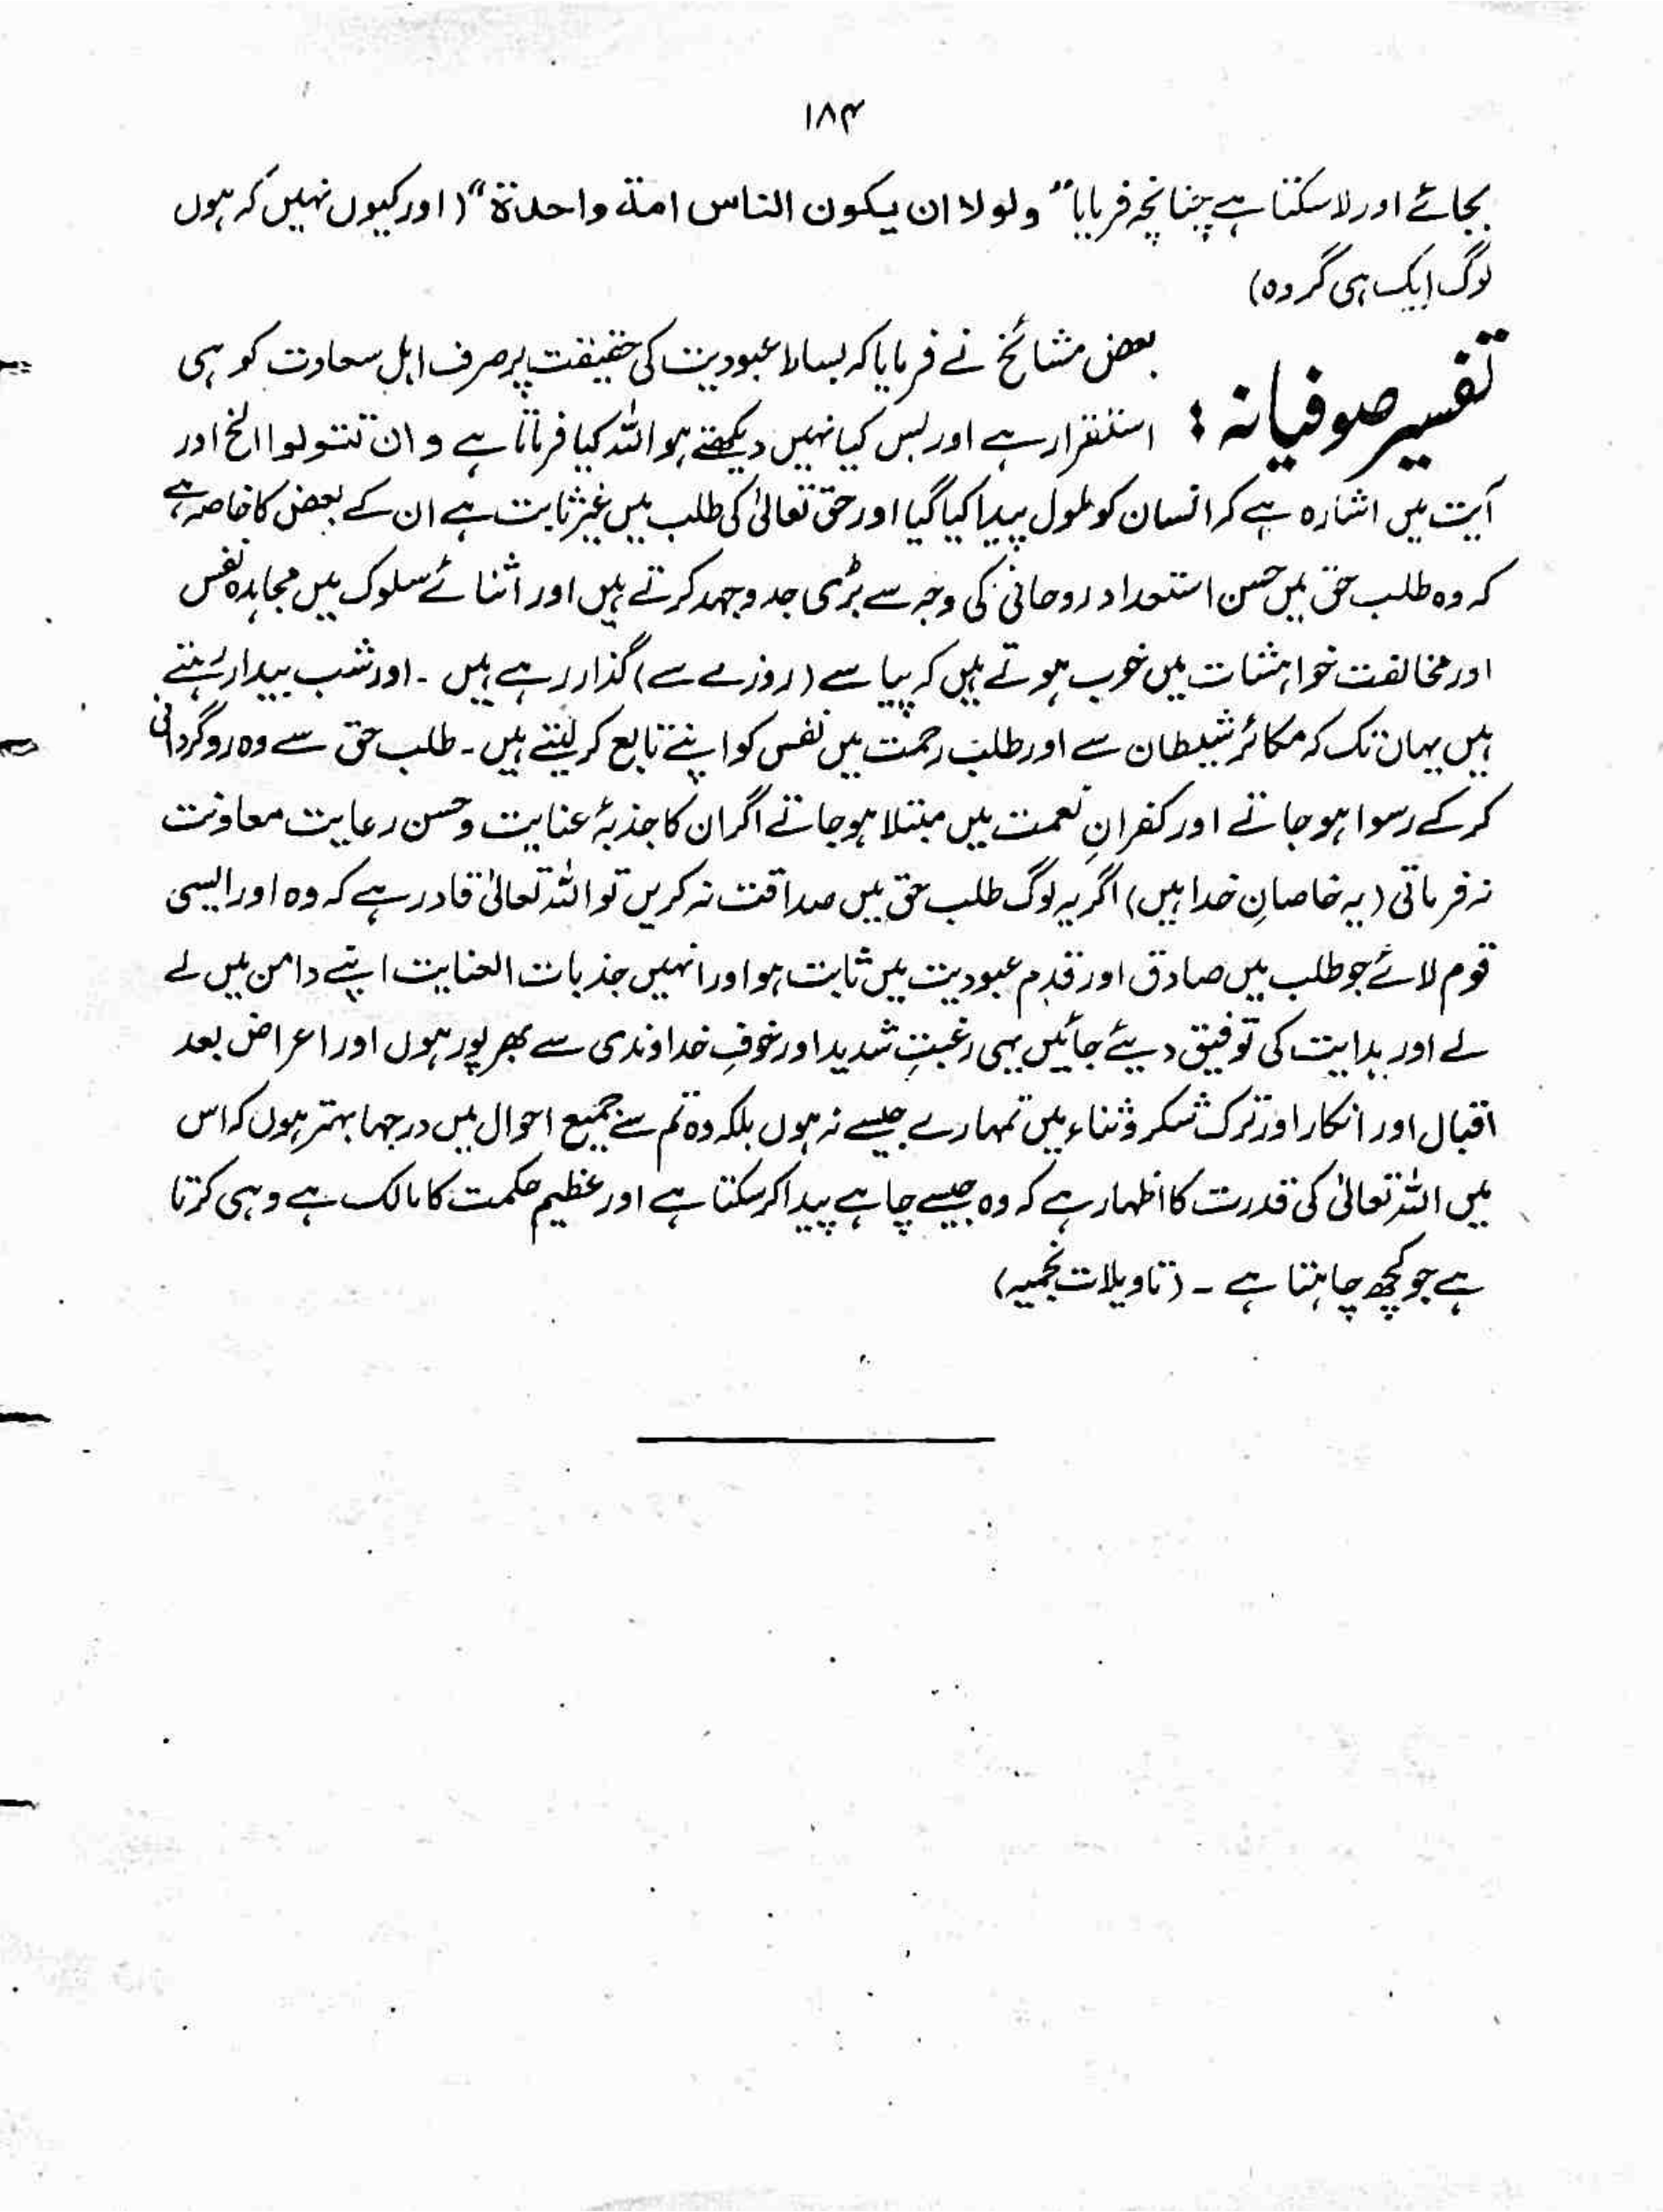 ۱۸۴
بجائے اور لا سکتا ہے چنانچہ فرمایا "ولولا ان یکون الناس امة واحدة" (اور کیوں نہیں کہ ہوں
لوگ ایک ہی گروہ)
تفسیر صوفیانہ : بعض مشائخ نے فرمایا کہ بساط عبودیت کی حقیقت پر صرف اہل سعادت کو ہی
استقرار ہے اور بس کیا نہیں دیکھتے ہو اللہ کیا فرماتا ہے و ان تتولوا الخ اور
آیت میں اشارہ ہے کہ انسان کو ملول پیدا کیا گیا اور حق تعالیٰ کی طلب میں غیر ثابت ہے ان کے بعض کا خاصہ ہے
کہ وہ طلب حق میں حسن استعداد روحانی کی وجہ سے بڑی جد و جہد کرتے ہیں اور اثنائے سلوک میں مجاہدہ نفس
اور مخالفت خواہشات میں خوب ہوتے ہیں کہ پیاسے (روزے سے) گذار رہے ہیں ۔ اور شب بیدار رہتے
ہیں یہاں تک کہ مکائر شیطان سے اور طلب رحمت میں نفس کو اپنے تابع کر لیتے ہیں ۔ طلب حق سے وہ روگردانی
کر کے رسوا ہو جاتے اور کفرانِ نعمت میں مبتلا ہو جاتے اگر ان کا جذبۂ عنایت و حسن رعایت معاونت
نہ فرماتی (یہ خاصانِ خدا ہیں) اگر یہ لوگ طلب حق میں صداقت نہ کریں تو اللہ تعالیٰ قادر ہے کہ وہ اور ایسی
قوم لائے جو طلب میں صادق اور قدم عبودیت میں ثابت ہو اور انہیں جذبات العنایت اپنے دامن میں لے
لے اور ہدایت کی توفیق دیئے جائیں یہی رغبتِ شدید اور خوفِ خداوندی سے بھرپور ہوں اور اعراض بعد
اقبال اور انکار اور ترک شکر و ثناء میں تمہارے جیسے نہ ہوں بلکہ وہ تم سے جمیع احوال میں درجہا بہتر ہوں کہ اس
میں اللہ تعالیٰ کی قدرت کا اظہار ہے کہ وہ جیسے چاہے پیدا کر سکتا ہے اور عظیم حکمت کا مالک ہے وہی کرتا
ہے جو کچھ چاہتا ہے ۔ (تاویلات نجمیہ)